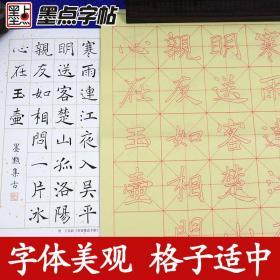 墨点字帖
寒雨連江夜入吴平
明送客楚山孤洛陽
親友如相問一片氷
心在玉壺
墨點集古
寒雨連江
明送客楚
親友如相
心在玉壺
字体美观 格子适中